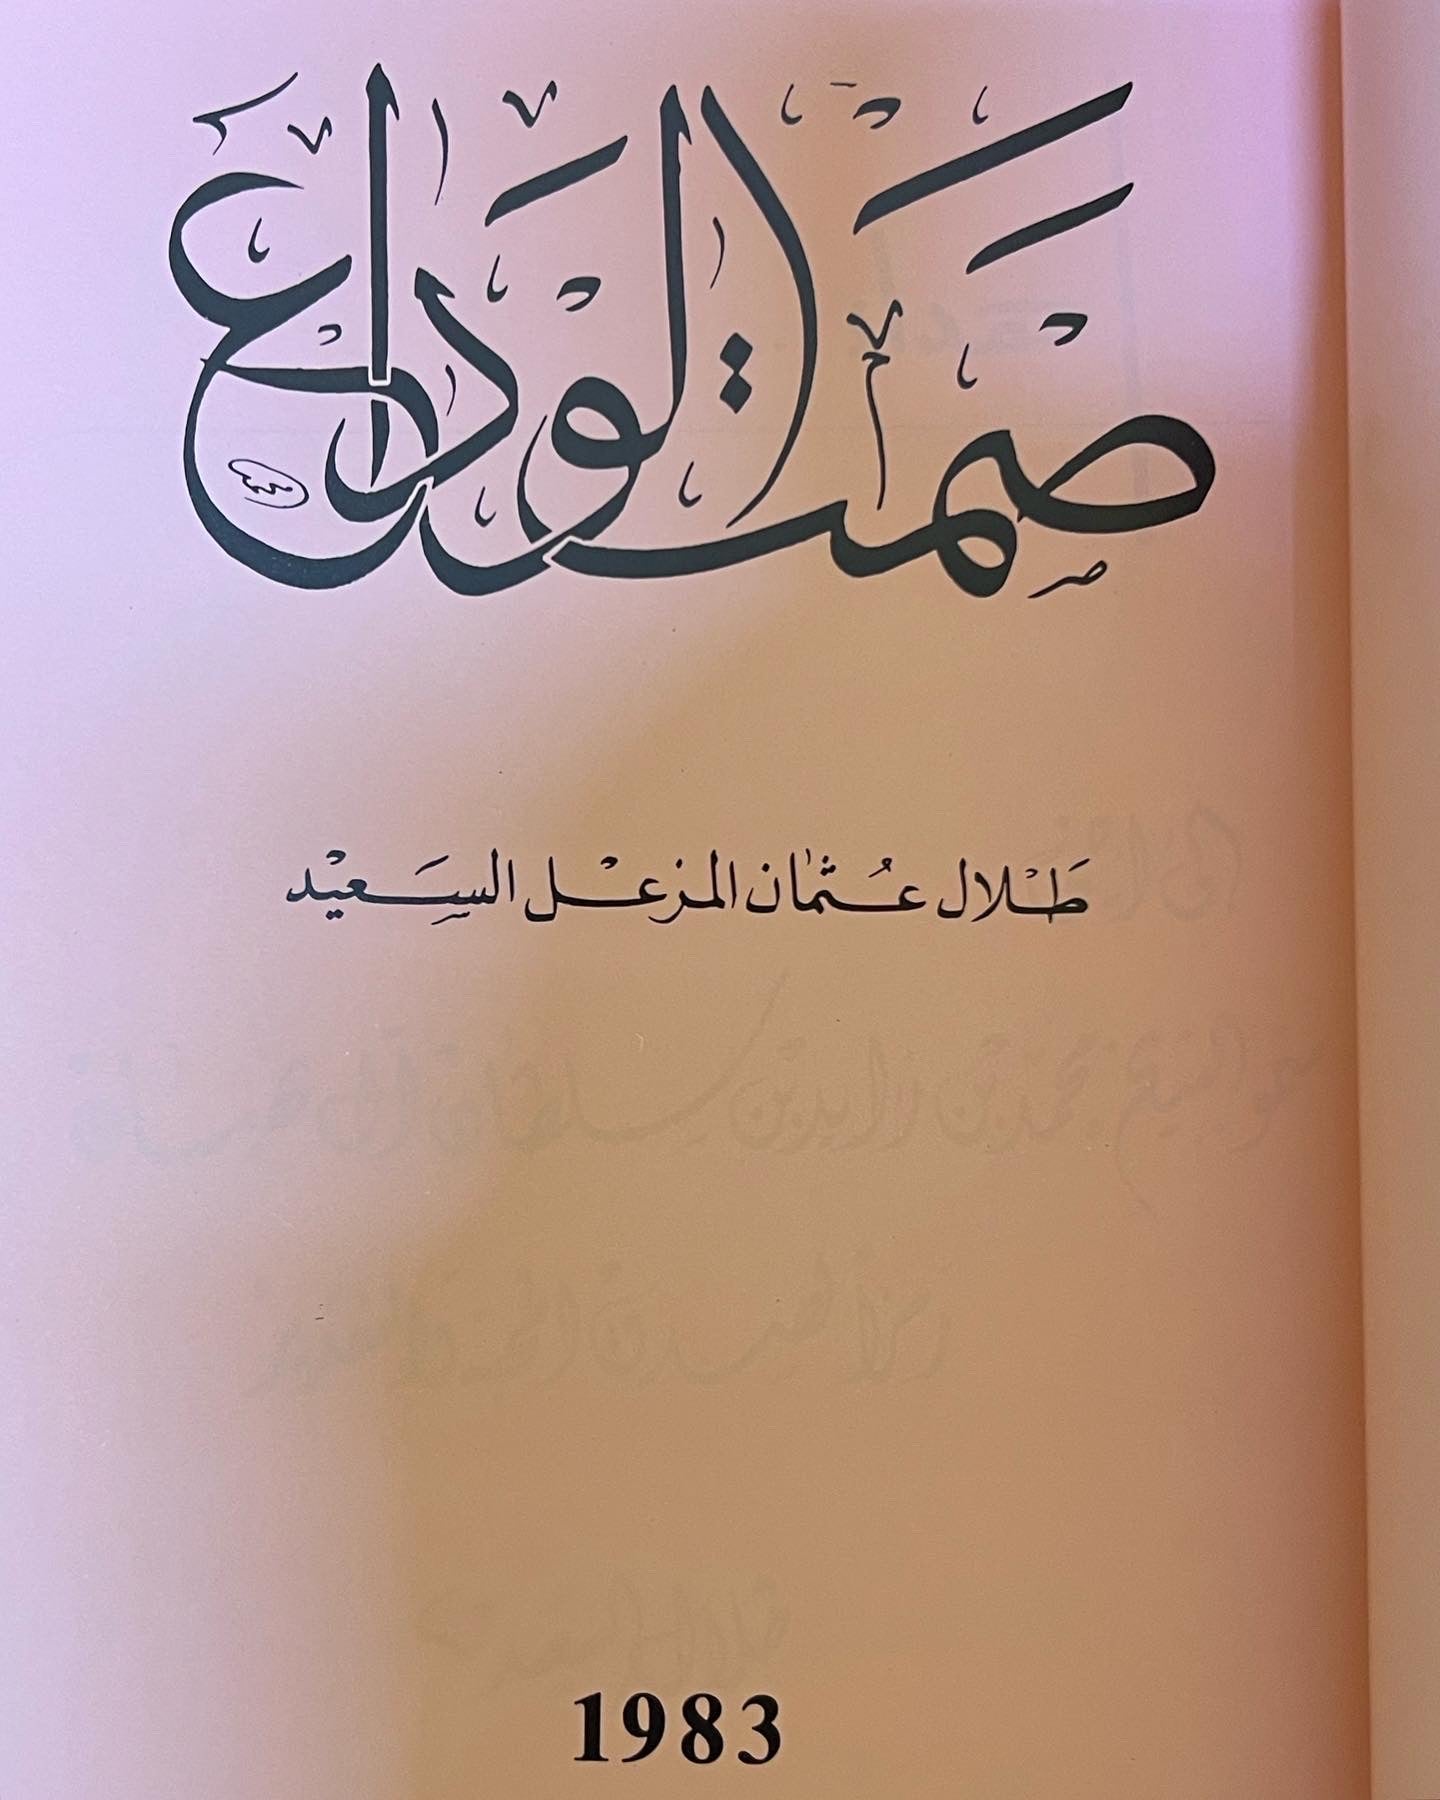 صمت الوداع
طلال عثمان المزعل السعيد
1983